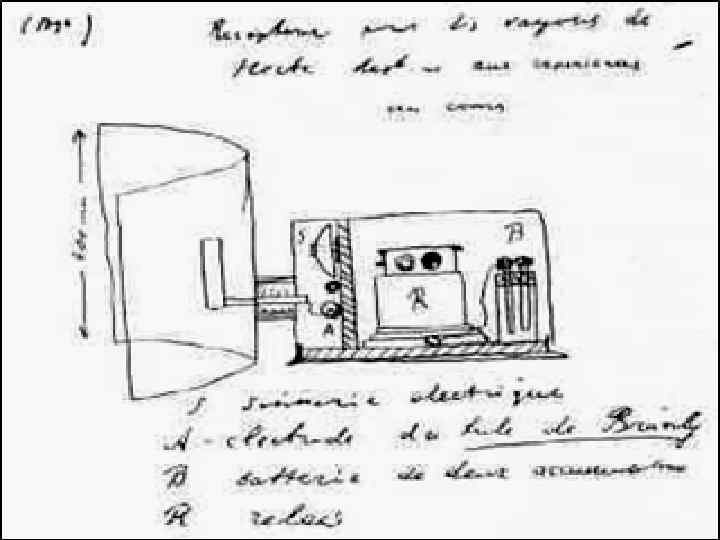 pour les rayons de
aux expériences
en cours
S
A
R
B
S sonnerie electrique
A - electrode du tube de Branly
B batterie de deux accumulateurs
R relais